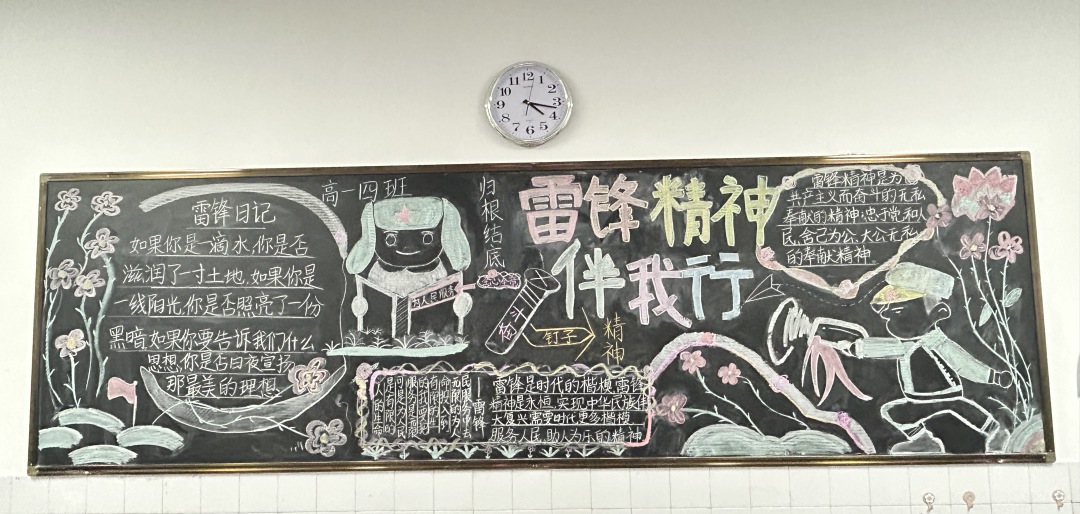 12
1
2
3
4
5
6
7
8
9
10
11
高一四班
雷锋日记
如果你是一滴水,你是否
滋润了一寸土地,如果你是
一线阳光,你是否照亮了一份
黑暗,如果你要告诉我们什么
思想,你是否日夜宣扬
那最美的理想
为人民服务
归根结底
奋斗
钉子
精神
雷锋精神
伴我行
雷锋精神是为
共产主义而奋斗的无私
奉献的精神;忠于党和人
民,舍己为公、大公无私
的奉献精神
人的生命
是有限的
可是为人民
服务是无限
的我要把
有限的生
命投入到
无限的为人
民服务中去
——雷锋
雷锋是时代的楷模,雷锋
精神是永恒,实现中华民族伟
大复兴需要时代更多楷模
服务人民,助人为乐的精神